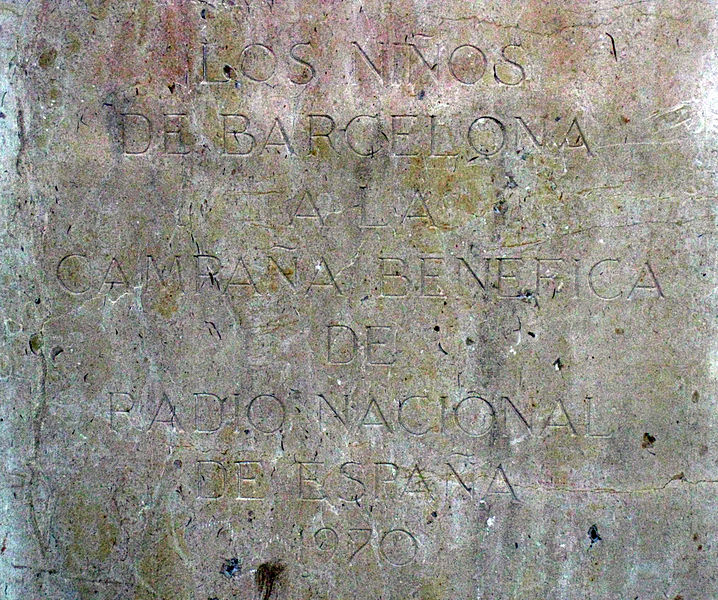 LOS NIÑOS
DE BARCELONA
A LA
CAMPAÑA BENEFICA
DE
RADIO NACIONAL
DE ESPAÑA
1970